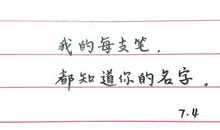 我的每支笔，
都知道你的名字。
7.4